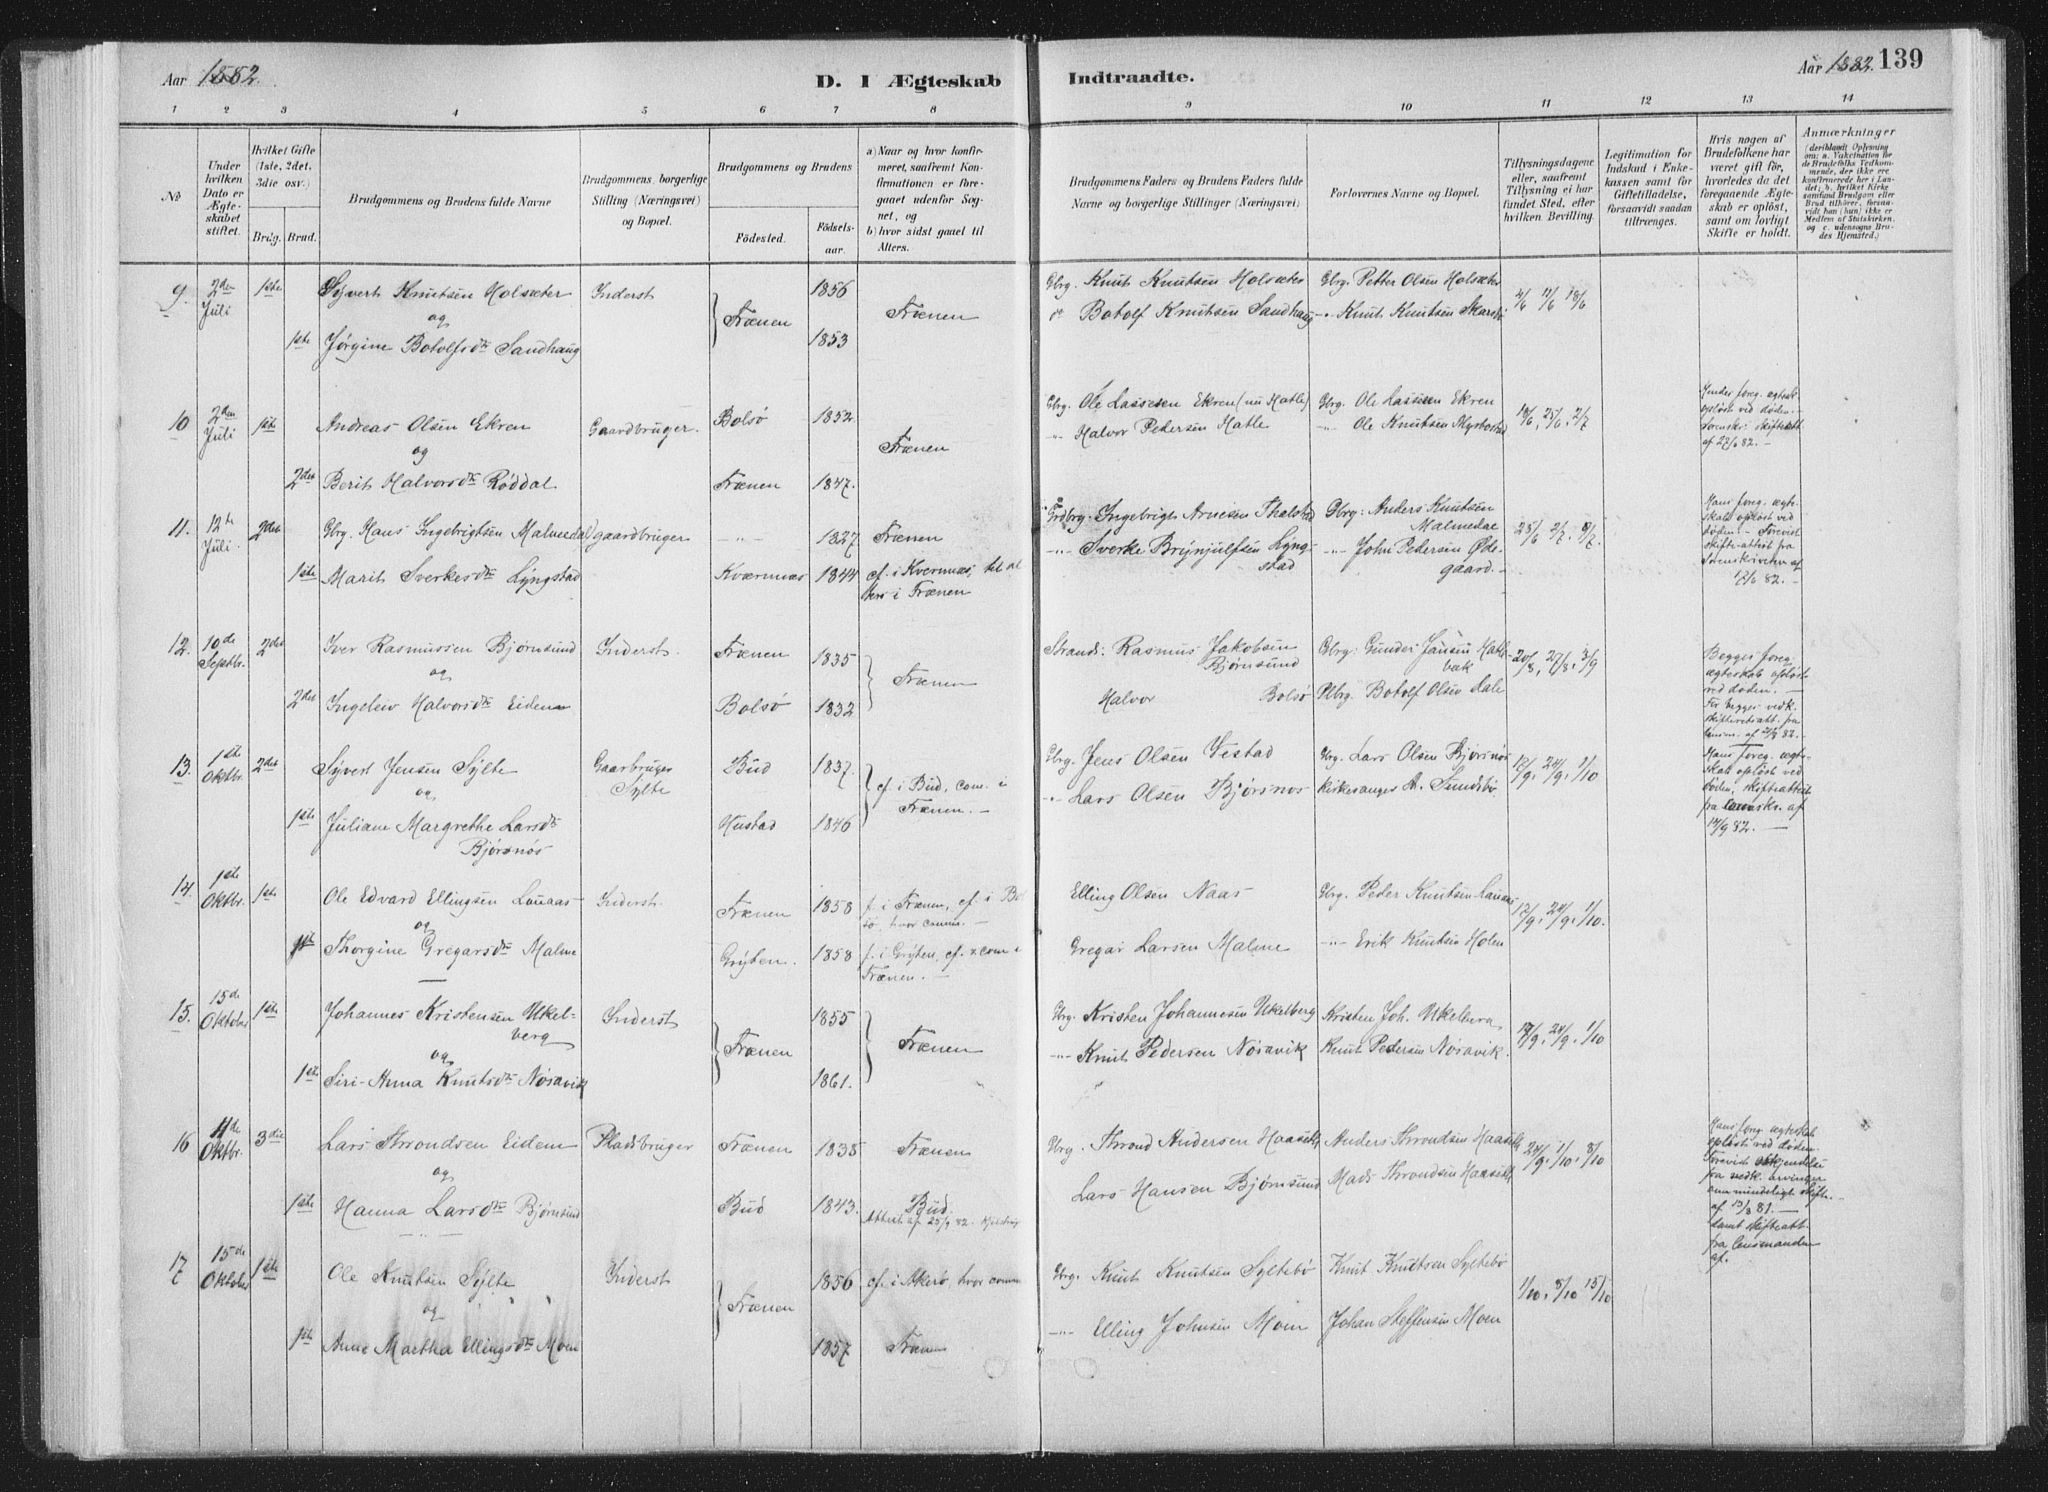 Aar 1882.
D. I Ægteskab Indtraadte.
Aar 1882. 139
1 2 3 4 5 6 7 8 9 10 11 12 13 14
No
Under hvilken Dato er Ægteskabet stiftet.
Hvilket Gifte (1ste, 2det, 3die osv.)
Brüg. Brud.
Brudgommens og Brudens fulde Navne
Brudgommens borgerlige Stilling (Næringsvei) og Bopæl.
Brudgommens og Brudens
Födested.
Födselsaar.
a) Naar og hvor konfirmeret, saafremt Konfirmationen er foregaaet udenfor Sognet, og
b) hvor sidst gaaet til Alters.
Brudgommens Faders og Brudens Faders fulde Navne og borgerlige Stillinger (Næringsvei)
Forlovernes Navne og Bopæl.
Tillysningsdagene eller, saafremt Tillysning ei har fundet Sted, efter hvilken Bevilling.
Legitimation for Indskud i Enkekassen samt for Giftetilladelse, forsaavidt saadan tiltrænges.
Hvis nogen af Brudefolkene har været gift för, hvorledes da det foregaaende Ægteskab er oplöst, samt om lovligt Skifte er holdt.
Anmærkninger (deriblandt Oplysning om: a. Vakcination for de Brudefolks Vedkommende, der ikke ere konfirmerede her i Landet; b. hvilket Kirkesamfund Brudgom eller Brud tilhörer, forsaavidt han (hun) ikke er Medlem af Statskirken, og c. udensogns Brudes Hjemsted.)
9. 2den Juli 1ste Syvert Knutsen Holsæter Inderst 1856 Gbrg. Knut Knutsen Holsæter Gbrg. Petter Olsen Holsæter
og Frænen Frænen 4/6 11/6 18/6
do Botolf Knutsen Sandhaug -"- Knut Knutsen Skarsbø
1ste Jørgine Botolfsdtr Sandhaug 1853
10 2den Juli 1ste Andreas Olsen Ekren Gaardbruger. Bolsø 1852 Gbrg. Ole Lassesen Ekren (nu Hatle) Gbrg. Ole Lassesen Ekren 18/6, 25/6, 2/7
og Frænen -"- Halvor Pedersen Hatle -"- Ole Knutsen Myrbostad
Hendes foreg. ægtesk. opløst ved døden.
2det Berit Halvorsdtr Røddal Frænen 1847.
11. 12te Juli. 2det Gbrg. Hans Ingebrigtsen Malmedal gaardbruger -"- 1827 Frænen Grdbrg. Ingebrigt Arnesen Thalstad Gbrg: Anders Knutsen Malmedal 25/6 2/7. 9/7.
1ste Marit Sverkesdtr Lyngstad Kværnnes 1844 cf. i Kvernnes, til alters i Frænen -"- Sverke Brynjulfsen Lyngstad -"- John Pedersen Ødegaard.
Hans foreg. ægteskab opløst ved døden. – Forevist skifte-attest fra
12. 10de Septbr. 2det Iver Rasmussen Bjørnsund Inderst. Frænen 1835 Strands: Rasmus Jakobsen Bjørnsund 20/8, 27/8, 3/9
og Frænen
2det Ingeleiv Halvorsdtr Eidem Bolsø 1832 Halvor Bolsø Gbrg. Botolf Olsen Dale
Begges foreg. ægteskab opløst ved døden.
13. 1ste Oktbr. 2det Syvert Jensen Sylte Gaarbruger Sylte Bud 1837. Gbrg. Jens Olsen Vestad Gbrg. Lars Olsen Bjørsnøs 17/9. 24/9. 1/10
og cf. i Bud, com. i Frænen. -"- Lars Olsen Bjørsnos Kirkesanger A. Sundsbø.
1ste Juliane Margrethe Larsdtr Bjørsnøs Hustad 1846
Hans foreg. ægteskab opløst ved døden, skifteattest fra lensm. af 14/9 82.
14. 1ste Oktbr. 1ste Ole Edvard Ellingsen Lanaas Inderst. Frænen 1858 f. i Frænen, cf. i Bolsø, hvor comm. Elling Olsen Naas Gbrg. Peder Knutsen Lanaas 17/9, 24/9, 1/10.
og
1ste Thorgine Gregarsdtr Malme Gryten. 1858 f. i Gryten, cf. & com i Frænen. Gregar Larsen Malme -"- Erik Knutsen Holen
15. 15de Oktober 1ste Johannes Kristensen Ukelberg Inderst 1855 Gbrg. Kristen Johannesen Ukelberg Kristen Joh. Ukelberg
og Frænen Frænen 17/9, 24/9, 1/10
-"- Knut Pedersen Nøsavik Knut Pedersen Nøsavik.
1ste Siri-Anna Knutsdtr Nøsavik 1861.
16 11de Oktbr. 3die Lars Throndsen Eidem Pladsbruger Frænen 1835 Frænen Gbrg. Thrond Andersen Haaseth Anders Throndsen Haaseth 24/9, 1/10, 8/10
og
1ste Hanna Larsdtr Bjørnsund Bud 1843. Bud. Attest af 25/9 82. Lars Hansen Bjørnsund Mads Throndsen Haaseth
Hans foreg. ægteskab opløst ved døden. Forevist fra vedk. arvinger om mindeligt skifte af 13/3 81. samt skifteatt. fra lensmanden af.
17 15de Oktober 1ste Ole Knutsen Sylte Inderst 1856 cf. i Akerø, hvor comm. Gbrg. Knut Knutsen Syltebø Knut Knutsen Syltebø
og Frænen 1/10, 8/10 15/10
-"- Elling Johnsen Moen Johan Steffensen Moen
1ste Anne Martha Ellingsdtr Moen 1857 Frænen